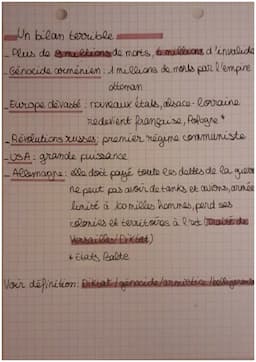 Un bilan terrible
- Plus de 8 millions de morts, 6 millions d'invalide
- Génocide arménien : 1 millions de morts par l'empire
ottoman
- Europe dévasté : nouveaux états, alsace-lorraine
redevient française, Pologne *
- Révolutions russes : premier régime communiste
- USA : grande puissance
- Allemagne : elle doit payé toute les dettes de la guerre
ne peut pas avoir de tanks et avions, armée
limité à 100 milles hommes, perd ses
colonies et territoires à l'est (traité de
Versailles / Diktat)
* Etats Balte
Voir définition : Diktat / génocide / armistice / belligérants